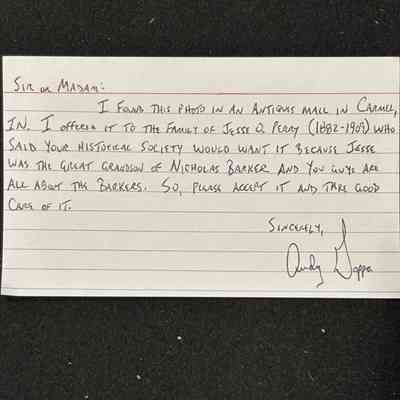 Sir or Madam:
I found this photo in an antiques mall in Carmel,
IN. I offered it to the family of Jesse O. Perry (1882-1909) who
said your historical society would want it because Jesse
was the great grandson of Nicholas Barker and you guys are
all about the Barkers. So, please accept it and take good
care of it.
Sincerely,
Andy